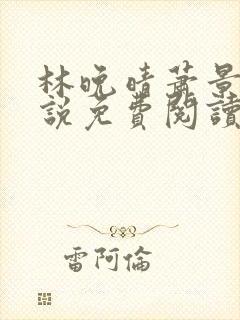 林晚晴蕭景
說免費閱讀
雷阿倫